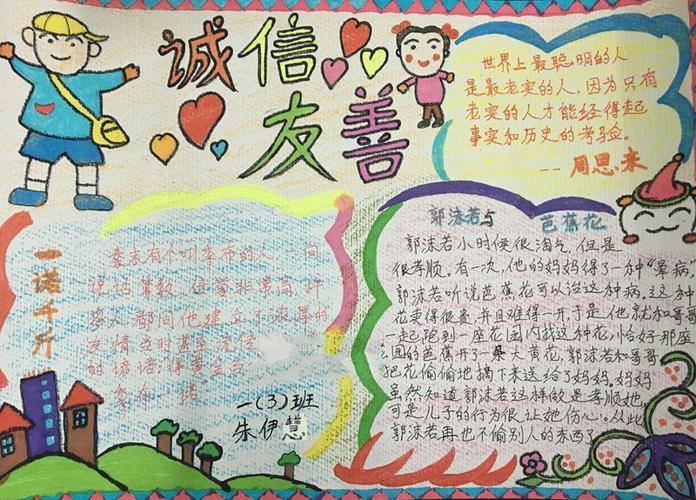 诚信
友善
世界上最聪明的人
是最老实的人,因为只有
老实的人才能经得起
事实和历史的考验。
--周恩来
一诺千斤
秦末有个叫季布的人,一向
说话算数,信誉非常高,许
多人都同他建立了浓厚的
友情,当时甚至流传
的谚语:“得黄金
季布一诺”
一(3)班
朱伊慧
郭沫若与 芭蕉花
郭沫若小时候很淘气,但是
很孝顺。有一次,他的妈妈得了一种“晕病”
郭沫若听说芭蕉花可以治这种病。这种
花卖得很贵,并且难得一开,于是他就和哥哥
一起跑到一座花园内找这种花,恰好那座
公园的芭蕉开了一朵大黄花,郭沫若和哥哥
把花偷偷地摘下来送给了妈妈。妈妈
虽然知道郭沫若这样做是孝顺她,
可是儿子的行为很让她伤心。从此
郭沫若再也不偷别人的东西了